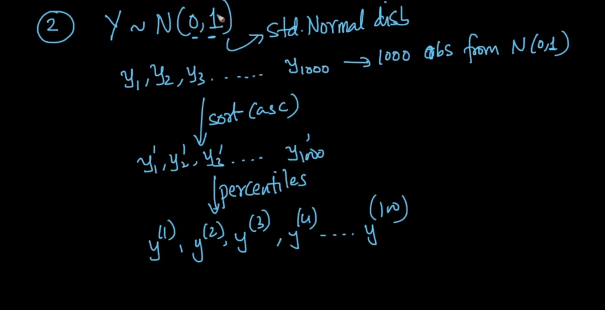 ② Y ~ N(0,1) → std. Normal distb
y₁, y₂, y₃ ....... y₁₀₀₀ → 1000 obs from N(0,1)
sort (asc)
y₁', y₂', y₃' .... y₁₀₀₀'
percentiles
y⁽¹⁾, y⁽²⁾, y⁽³⁾, y⁽⁴⁾ .... y⁽¹⁰⁰⁾